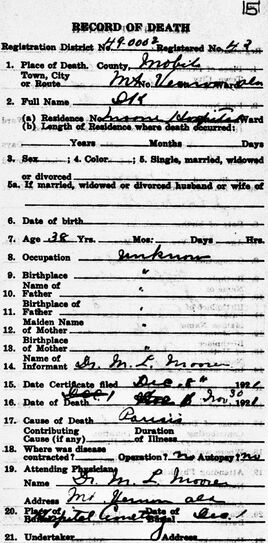 5
RECORD OF DEATH
Registration District No. 49-0002 Registered No. 43
1. Place of Death. County, Mobile
Town, City
or Route Mt. Vernon Ward Ala
2. Full Name
(a) Residence No. Insane Hospital Ward
(b) Length of Residence where death occurred:
Years Months Days
3. Sex ; 4. Color ; 5. Single, married, widowed
or divorced
5a. If married, widowed or divorced husband or wife of
6. Date of birth
7. Age 38 Yrs. Mos: Days Hrs.
8. Occupation unknow
9. Birthplace "
Name of
10. Father "
11. Birthplace
of Father "
Maiden Name
12. of Mother "
Birthplace
13. of Mother "
14. Informant Dr. M. L. Moorer
15. Date Certificate filed Dec. 8" 1921
16. Date of Death Nov 30 1921
17. Cause of Death Parisis
Contributing Duration
Cause (if any) of Illness
18. Where was disease
contracted? Operation? no Autopsy? no
19. Attending Physician
Name Dr. M. L. Moorer
Address Mt Vernon Ala
20. Place of Date of
Hospital Cemetery Dec. 1
21. Undertaker
Address